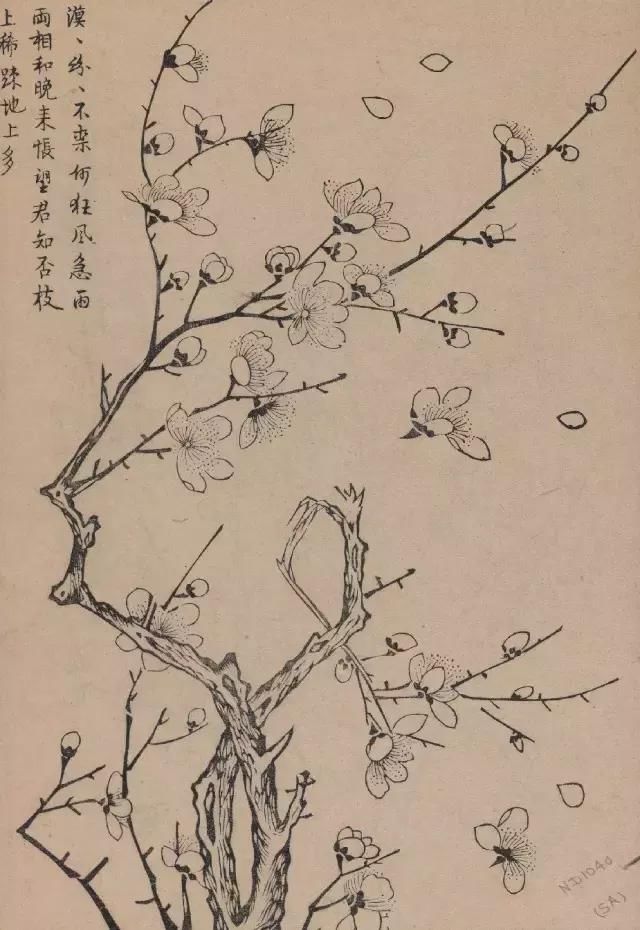 漠、紛、不柰何狂風急雨
兩相和晚来悵望君知否枝
上稀踈地上多
ND1040
(SA)